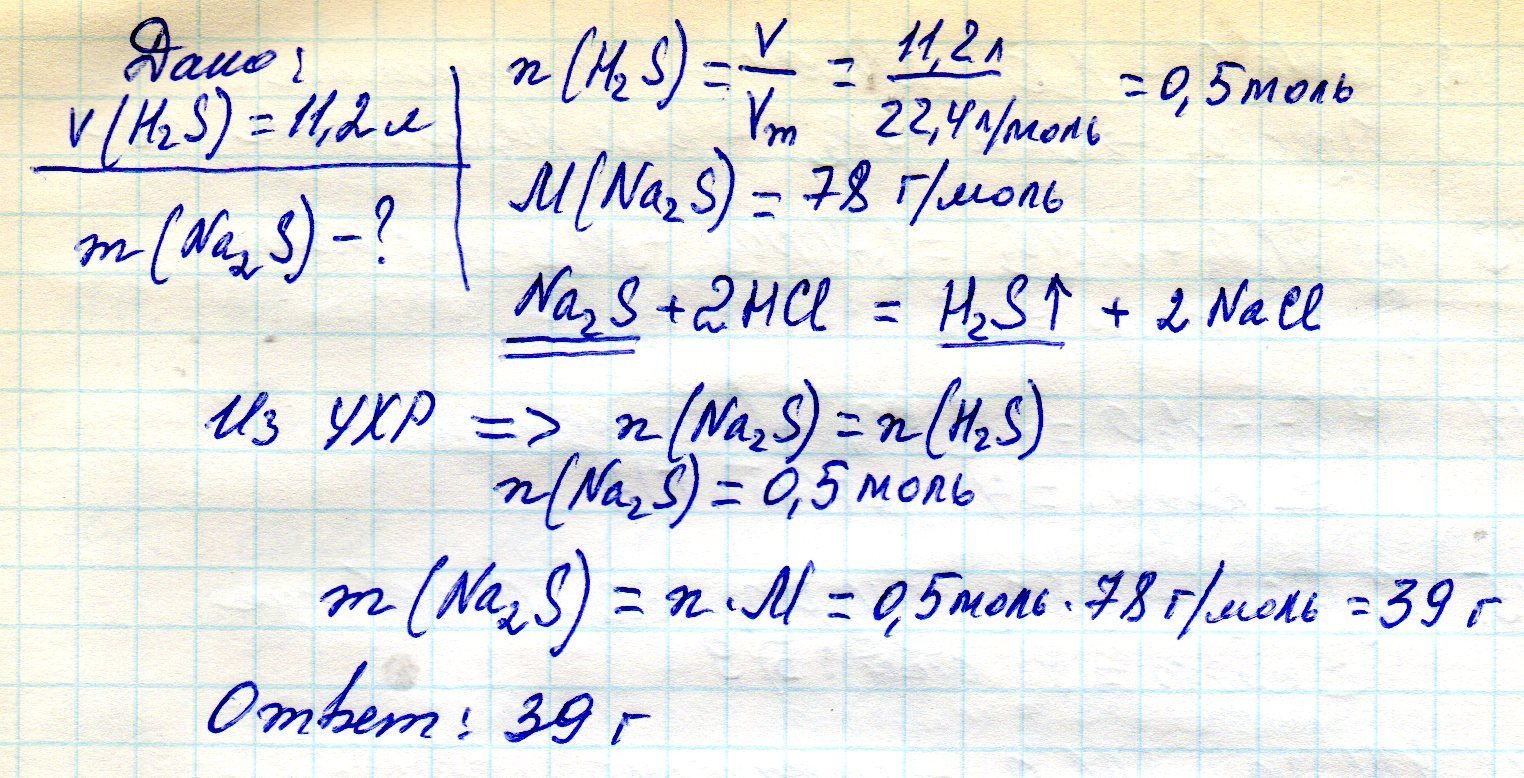 Дано:
V(H₂S) = 11,2 л
m(Na₂S) - ?
n(H₂S) = V/Vm = 11,2 л/22,4 л/моль = 0,5 моль
M(Na₂S) = 78 г/моль
Na₂S + 2HCl = H₂S↑ + 2NaCl
Из УХР => n(Na₂S) = n(H₂S)
n(Na₂S) = 0,5 моль
m(Na₂S) = n · M = 0,5 моль · 78 г/моль = 39 г
Ответ: 39 г